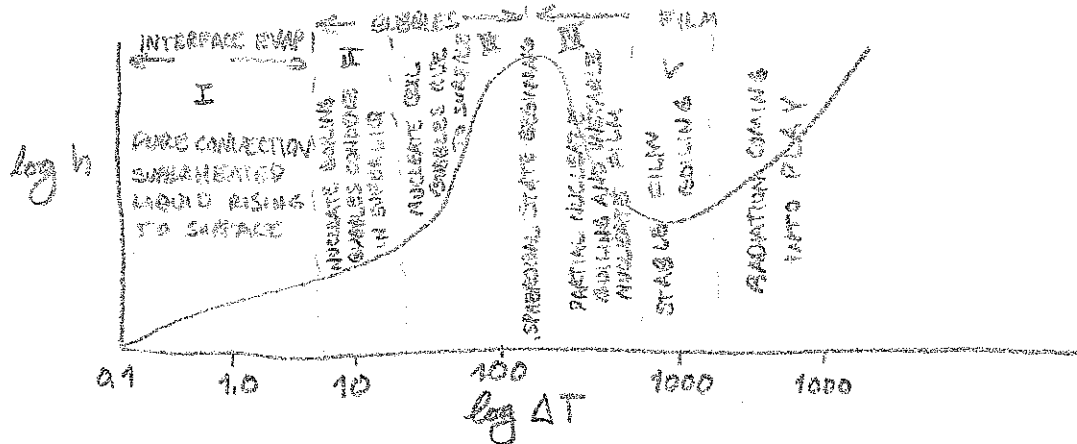 INTERFACE EVAP
BUBBLES
FILM
I
II
III
V
PURE CONVECTION
SUPERHEATED
LIQUID RISING
TO SURFACE
NUCLEATE BOILING
BUBBLES CONDENSE
IN SUP. LIQ
NUCLEATE BOIL
BUBBLES RISE
TO SURFACE
SPHEROIDAL STATE BEGINNING
PARTIAL NUCLEATE
BOILING AND UNSTABLE
FILM
STABLE FILM
BOILING
RADIATION COMING
INTO PLAY
log h
0,1
1,0
10
100
1000
1000
log ΔT